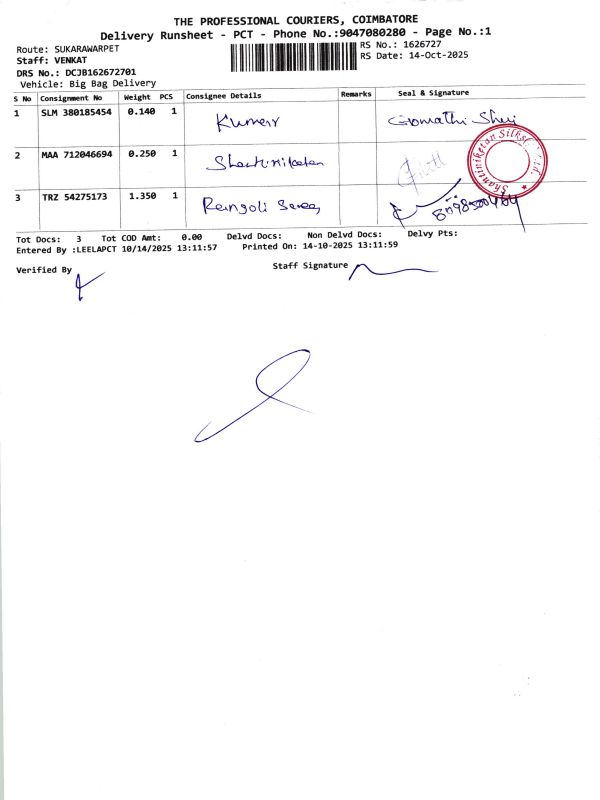 THE PROFESSIONAL COURIERS, COIMBATORE
Delivery Runsheet - PCT - Phone No.:9047080280 - Page No.:1
Route: SUKARAWARPET
RS No.: 1626727
Staff: VENKAT
RS Date: 14-Oct-2025
DRS No.: DCJB162672701
Vehicle: Big Bag Delivery
S No Consignment No Weight PCS Consignee Details Remarks Seal & Signature
1 SLM 380185454 0.140 1 Kumar Gomathi
2 MAA 712046694 0.250 1
Shantiniketan Silks
3 TRZ 54275173 1.350 1
Tot Docs: 3 Tot COD Amt: 0.00 Delvd Docs: Non Delvd Docs: Delvy Pts:
Entered By :LEELAPCT 10/14/2025 13:11:57 Printed On: 14-10-2025 13:11:59
Verified By
Staff Signature